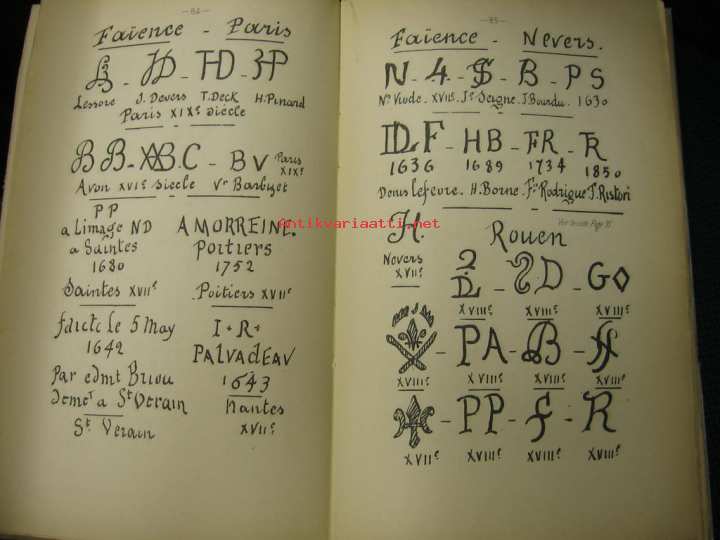 — 84 —
Faïence - Paris
TD - HP
Lessore J. Devers T. Deck H. Pinard
Paris XIXe siècle
BB - ABC - BV Paris
XIXe
Avon XVIe siecle Ve Barbizet
PP
a Limage ND
a Saintes
1680
Saintes XVIIe
AMORREINE.
Poitiers
1752
Poitiers XVIIe
faict le 5 May
1642
Par edmt Briou
demet a St Verain
St Verain
I • R •
PALVADEAV
1643
Nantes
XVIIe
— 85 —
Faïence - Nevers.
N - 4 - S - B - PS
Ne Viode. XVIIe. Js Seigne. J. Bourdu. 1630
DLF - HB - FR - R
1636 1689 1734 1850
Denis Lefevre. H. Borne. Fs Rodrigue J. Ristori
H.
Nevers
XVIIe
Rouen
D - GO
XVIIIe XVIIIe XVIIIe
PA - B -
XVIIIe XVIIIe XVIIIe XVIIIe
- PP - - R
XVIIe XVIIIe XVIIIe XVIIIe
Antikvariaatti.net